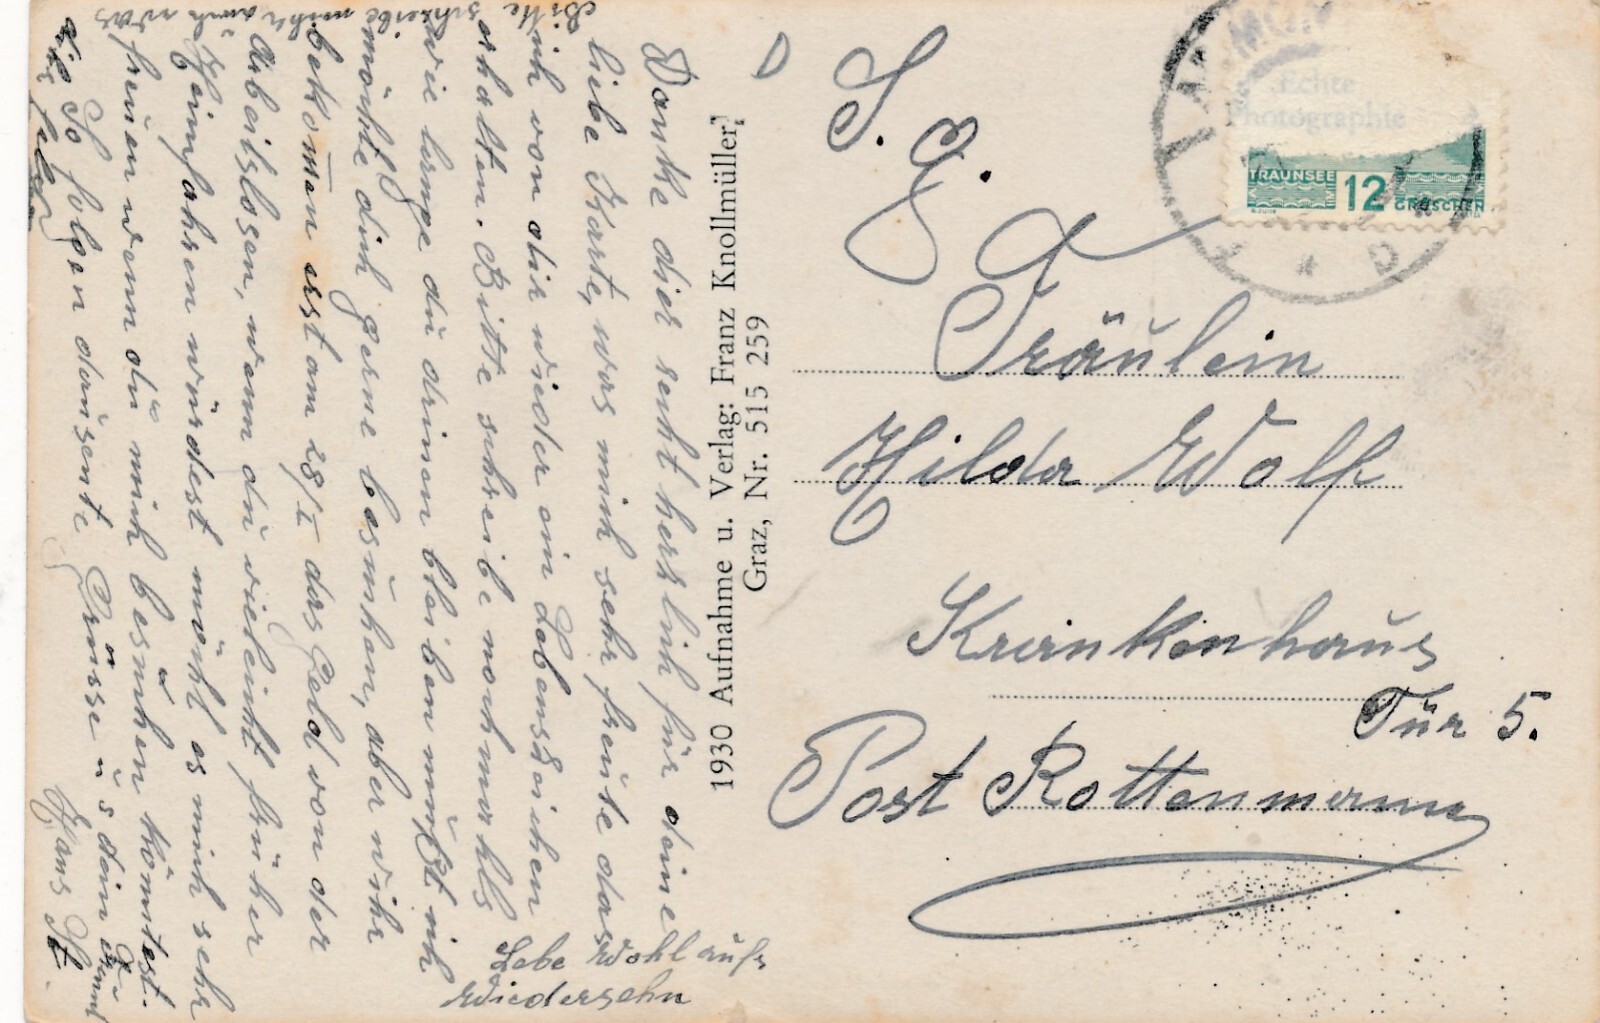 Danke dier seht herzlich für deine
liebe Karte, was mich sehr freute das
ich von dir wieder ein Lebenszeichen
erhalten. Bitte schreibe nochmahls
wie lange du drinen bleiben mußt ich
möchte dich gerne besuchen, aber wihr
bekom̄en erst am 28/I das Geld von der
Arbeitslosen, wenn du vieleicht früher
Heimfahren würdest möcht es mich sehr
freuen wenn du mich besuchen kömtest.
Die So folgen dausente Grüsse u s dein Freund
Hans St.
Bitte schreibe mihr auch was
Lebe Wohl aufs
Wiedersehn
1930 Aufnahme u. Verlag: Franz Knollmüller,
Graz, Nr. 515 259
S. g.
Fräulein
Hilda Wolf
Krankenhaus
Tür 5.
Post Rottenmann
Echte
Photographie
TRAUNSEE
12
GROSCHEN